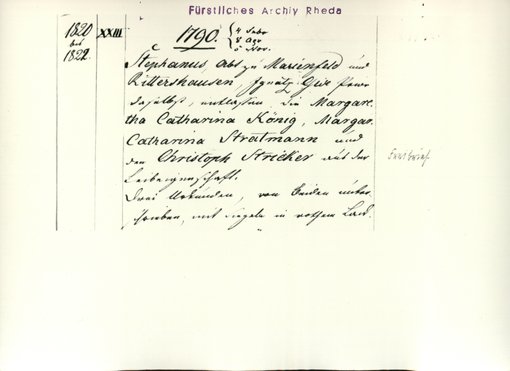 Fürstliches Archiv Rheda
1820
bis
1822.
XXIII
1790.
4 Febr
8 Apr
5 Nov.
Stephanus Abt zu Marienfeld und
Rittershausen, Ignatz
daselbst, entlassen die Margare-
tha Catharina König, Margar.
Catharina Stratmann und
den Christoph Stricker aus der
Leibeigenschaft.
Drei Urkunden, von beiden unter-
schrieben, mit Siegeln in rothem Lack.
Freibrief